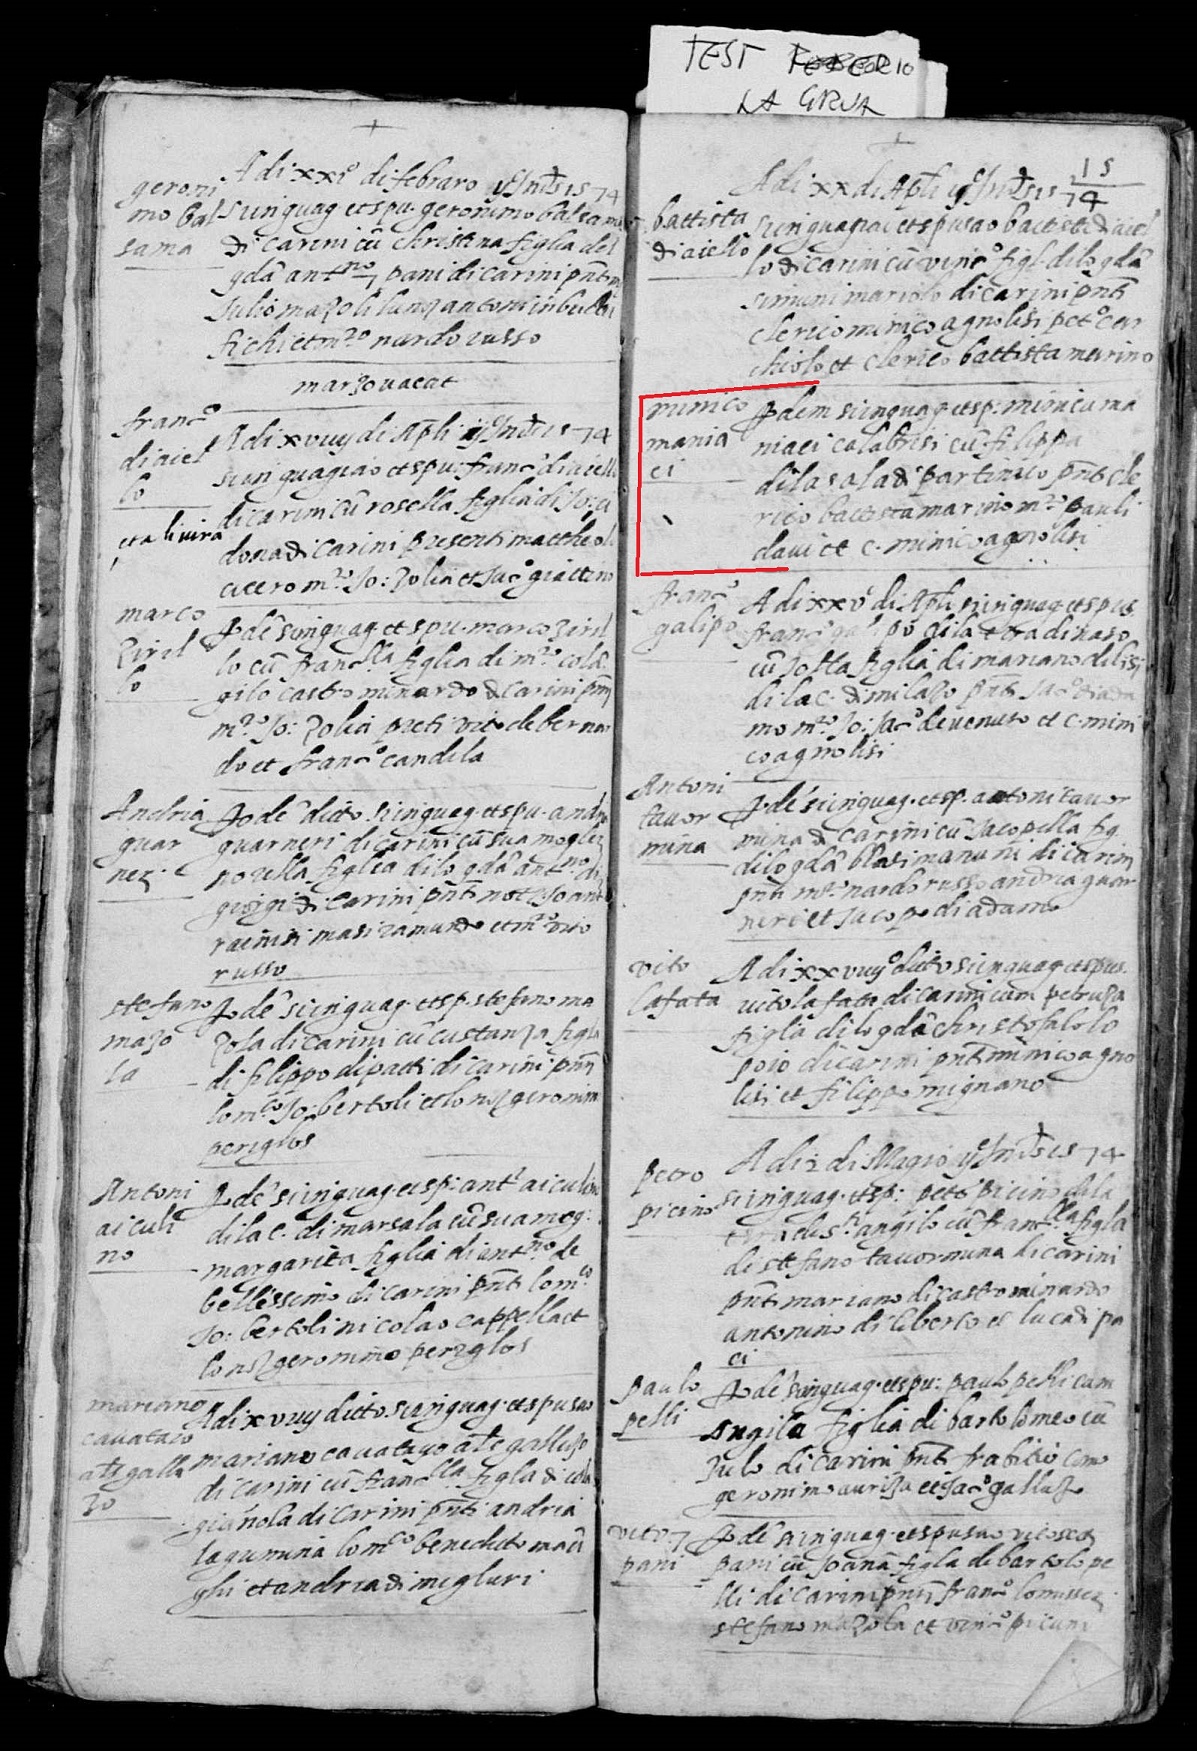 TEST
LA GRUA
15
geroni
mo bal
sama
A di xxi di febraro ij Ind 1574
si inguag et spu. geronimo balsamo
di carini cu christina figlia del
qda antno pani di carini pnti
Julio mazoli
fichi et mro nardo russo
marzo vacat
franco
di aiel
lo
et alivira
A di xvuij di Apli ij Ind 1574
si inguagiao et spu: franco di aiello
di carini cu rosella figlia di Jo:
dona di Carini presenti mattheo
cicero mro Jo: Zolia et Jaco giattino
marco
Ziril
lo
Jo de si inguag et spu. marco Ziril
lo cu francella figlia di mro cola
gilo castro minardo di carini pnti
mro Jo: Zolia preti vito de berna
do et franco candela
Andria
guar
ner.
Jo de ditto si inguag. et spu. andria
guarneri di carini cu sua mogleri
figlia di lo qda antno di
giorgi di Carini pnti not Jo ant
rainisi masi ramundo et mro vito
russo
stefano
mazo
la
Jo de si inguag. et sp. stefano ma
zola di carini cu custanza figla
di filippo di patti di carini pnti
lo mco Jo: bertoli et lo geronimo
periglos
Antoni
aiculi
no
Jo de si inguag. et sp: anto aiculino
di la c. di marsala cu sua mog:
margarita figlia di antno de
bellissimo di carini pnti lo mco
Jo: bertoli nicolao cappella et
lo geronimo periglos
mariano
cavataio
als gallu
zo
A di xvuij ditto si inguag. et spusao
mariano cavatayo als galluzo
di carini cu francella figla di cola
gianola di Carini pnti andria
lagumina lo mco beneditto
ghi et andria di migluri
battista
di aiello
A di xx di Apli ij Ind 1574
si inguagiao et spusao battista di aiel
lo di carini cu vinca figl. di lo qda
simuni mariolo di carini pnti
clerico minico agnolisi peto car
chiolo et clerico battista marino
minico
mania
ci
Jodem si inguag. et sp: minicu ma
niaci calabrisi cu filippa
di la sala di partinico pnti cle
rico battista marino mro pauli
davi et c. minico agnolisi
franco
galipo
A di xxv di Apli si inguag. et spus
franco galipo di la terra di naso
cu Jolla figlia di mariano di lisi
di la c. di milazo pnti Jaco di ada
mo mro Jo: Jaco de venuto et c. mini
co agnolisi
Antoni
tavor
mina
Jo de si inguag. et sp. antoni tavor
mina di carini cu Jacopella fig.
di lo qda blasi manuni di carini
pnti mro nardo russo andria guar
neri et Jacopo di adamo
vito
lafata
A di xxvuij ditto si inguag et spus.
vito la fata di carini cum petruza
figla di lo qda christofalo lo
poio di carini pnti minico agno
lisi et filippo mignano
petro
picino
A di 2 di Magio ij Ind 1574
si inguag. et sp: petro picino di la
terra de sto angilo cu francella figla
di stefano tavormina di carini
pnti mariano di castro minardo
antonino di liberto et luca di pa
ci
paulo
pelli
Jo de si inguag. et spu: paulo pelli cum
Angila figlia di bartolomeo cu
zulo di carini pnti fabritio como
geronimo auriza et Jaco galluzo
vito
pani
Jo de si inguag. et spusao vito
pani cu Joana figla di bartolo pe
lli di carini pnti franco
stefano mazola et vinco picuni